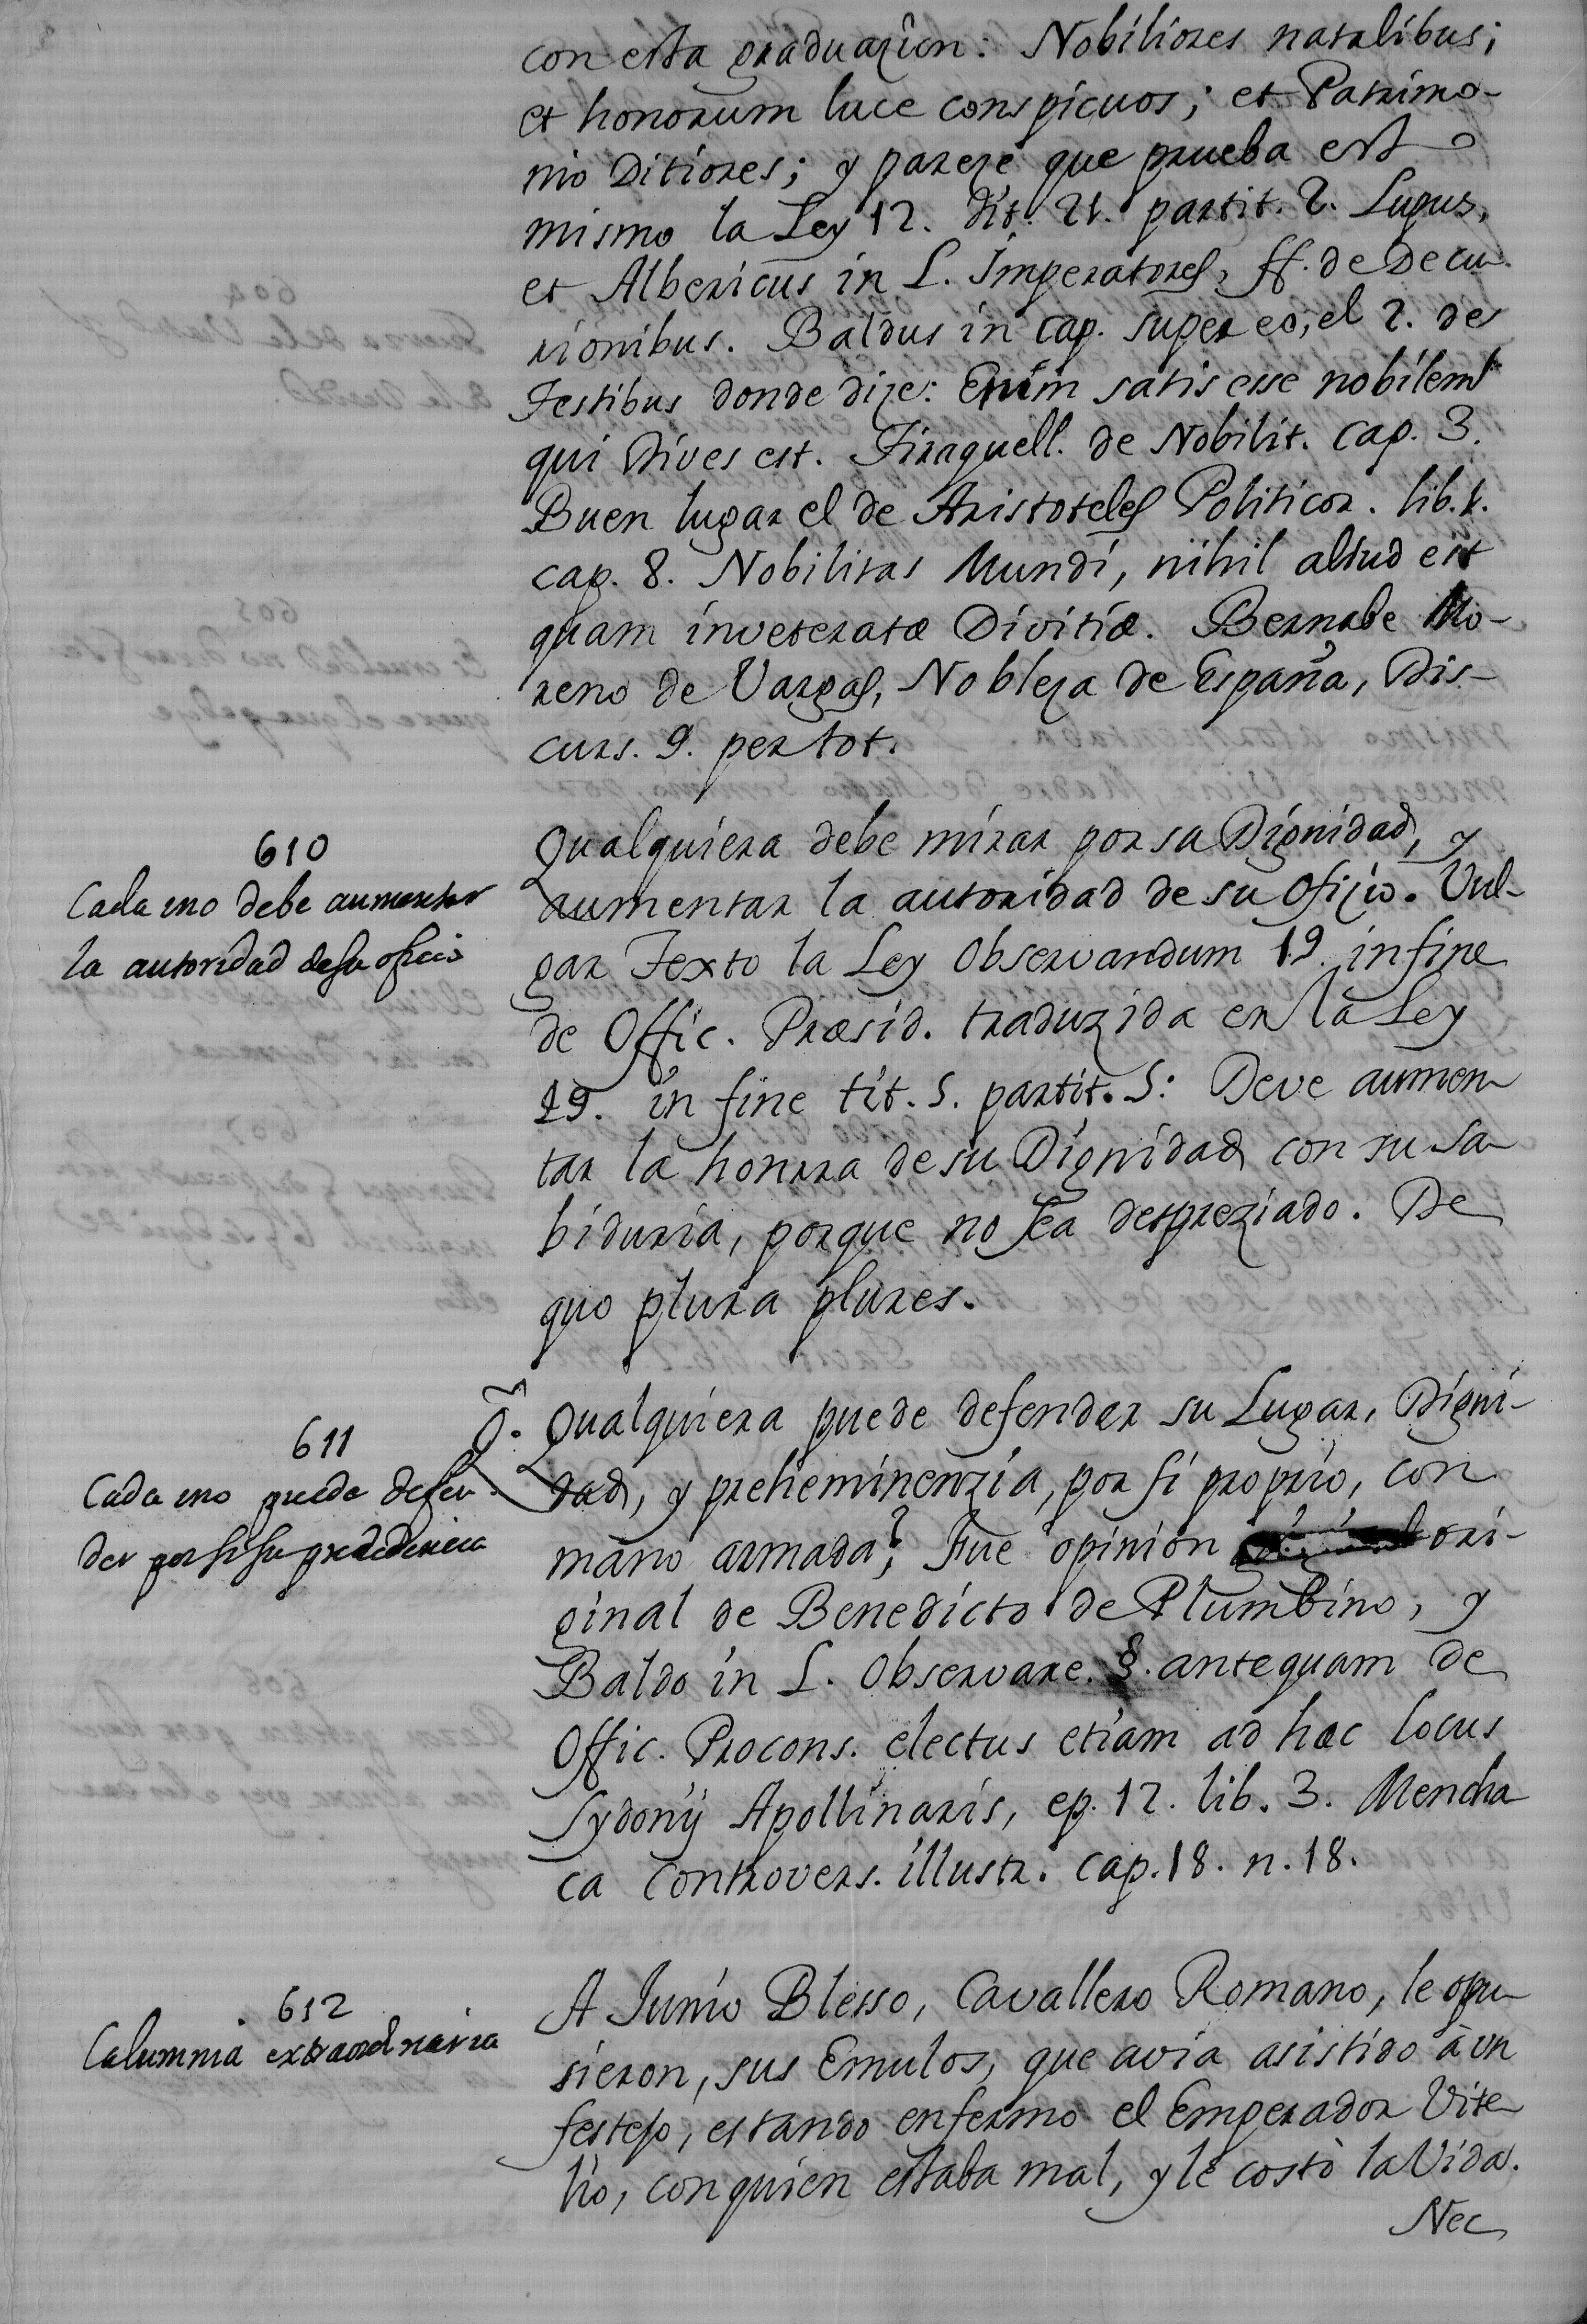 con esta graduaçion: Nobiliores natalibus;
et honorum luce conspicuos; et Patrimo-
nio Ditiores; y pareze que prueba esto
mismo la Ley 12. tit. 21. partit. 2. Lupus,
et Albericus in L. Imperatores, ff. de Decu-
rionibus. Baldus in cap. super eo, el 2. de
Testibus donde dize: Enim satis esse nobilem
qui Dives est. Tiraquell. de Nobilit. cap. 3.
Buen lugar el de Aristoteles Politicor. lib. 4.
cap. 8. Nobilitas Mundi, nihil aliud est
quam inveteratæ Divitiæ. Bernabe Mo-
reno de Vargas, Nobleza de España, Dis-
curs. 9. per tot.
610
Cada uno debe aumentar
la autoridad de su oficio
Qualquiera debe mirar por su Dignidad, y
aumentar la autoridad de su Ofizio. Vul-
gar Texto la Ley Observandum 19. in fine
de Offic. Præsid. traduzida en la Ley
19. in fine tit. 5. partit. 5: Deve aumen-
tar la honrra de su Dignidad con su sa-
biduria, porque no sea despreziado. De
quo plura plures.
611
Cada uno puede defen-
der por si su precedencia
Q. Qualquiera puede defender su Lugar, Digni-
dad, y preheminenzia, por si proprio, con
mano armada? Fue opinion ori-
ginal de Benedicto de Plumbino, y
Baldo in L. Observare. §. antequam de
Offic. Procons. electus etiam ad hæc locus
Sydonij Apollinaris, ep. 12. lib. 3. Mencha
ca Controvers. illustr. cap. 18. n. 18.
612
Calumnia extraordinaria
A Junio Blesso, Cavallero Romano, le opu-
sieron, sus Emulos, que avia asistido à un
festejo, estando enfermo el Emperador Vite-
lio, con quien estaba mal, y le costò la Vida.
Nec